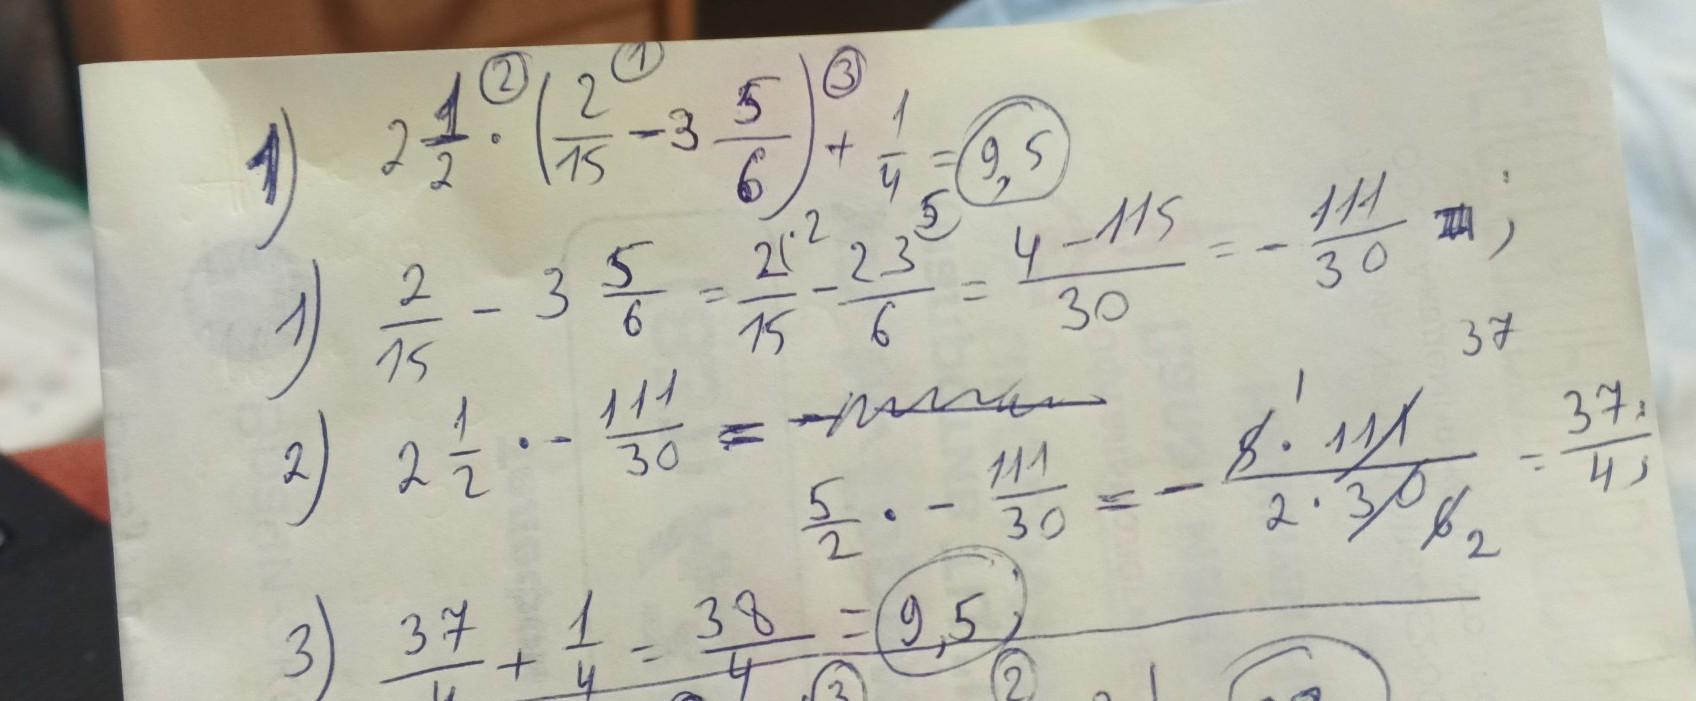 1) 2 1/2 ② · (2/15 ① - 3 5/6) ③ + 1/4 = 9,5
1) 2/15 - 3 5/6 = 2^(·2/15) - 23^(5/6) = 4 - 115/30 = - 111/30 ;
37
2) 2 1/2 · - 111/30 = -
5/2 · - 111/30 = - 5 · 111 1/2 · 30 6 2 = 37/4 ;
3) 37/4 + 1/4 = 38/4 = 9,5 ;
③ ②